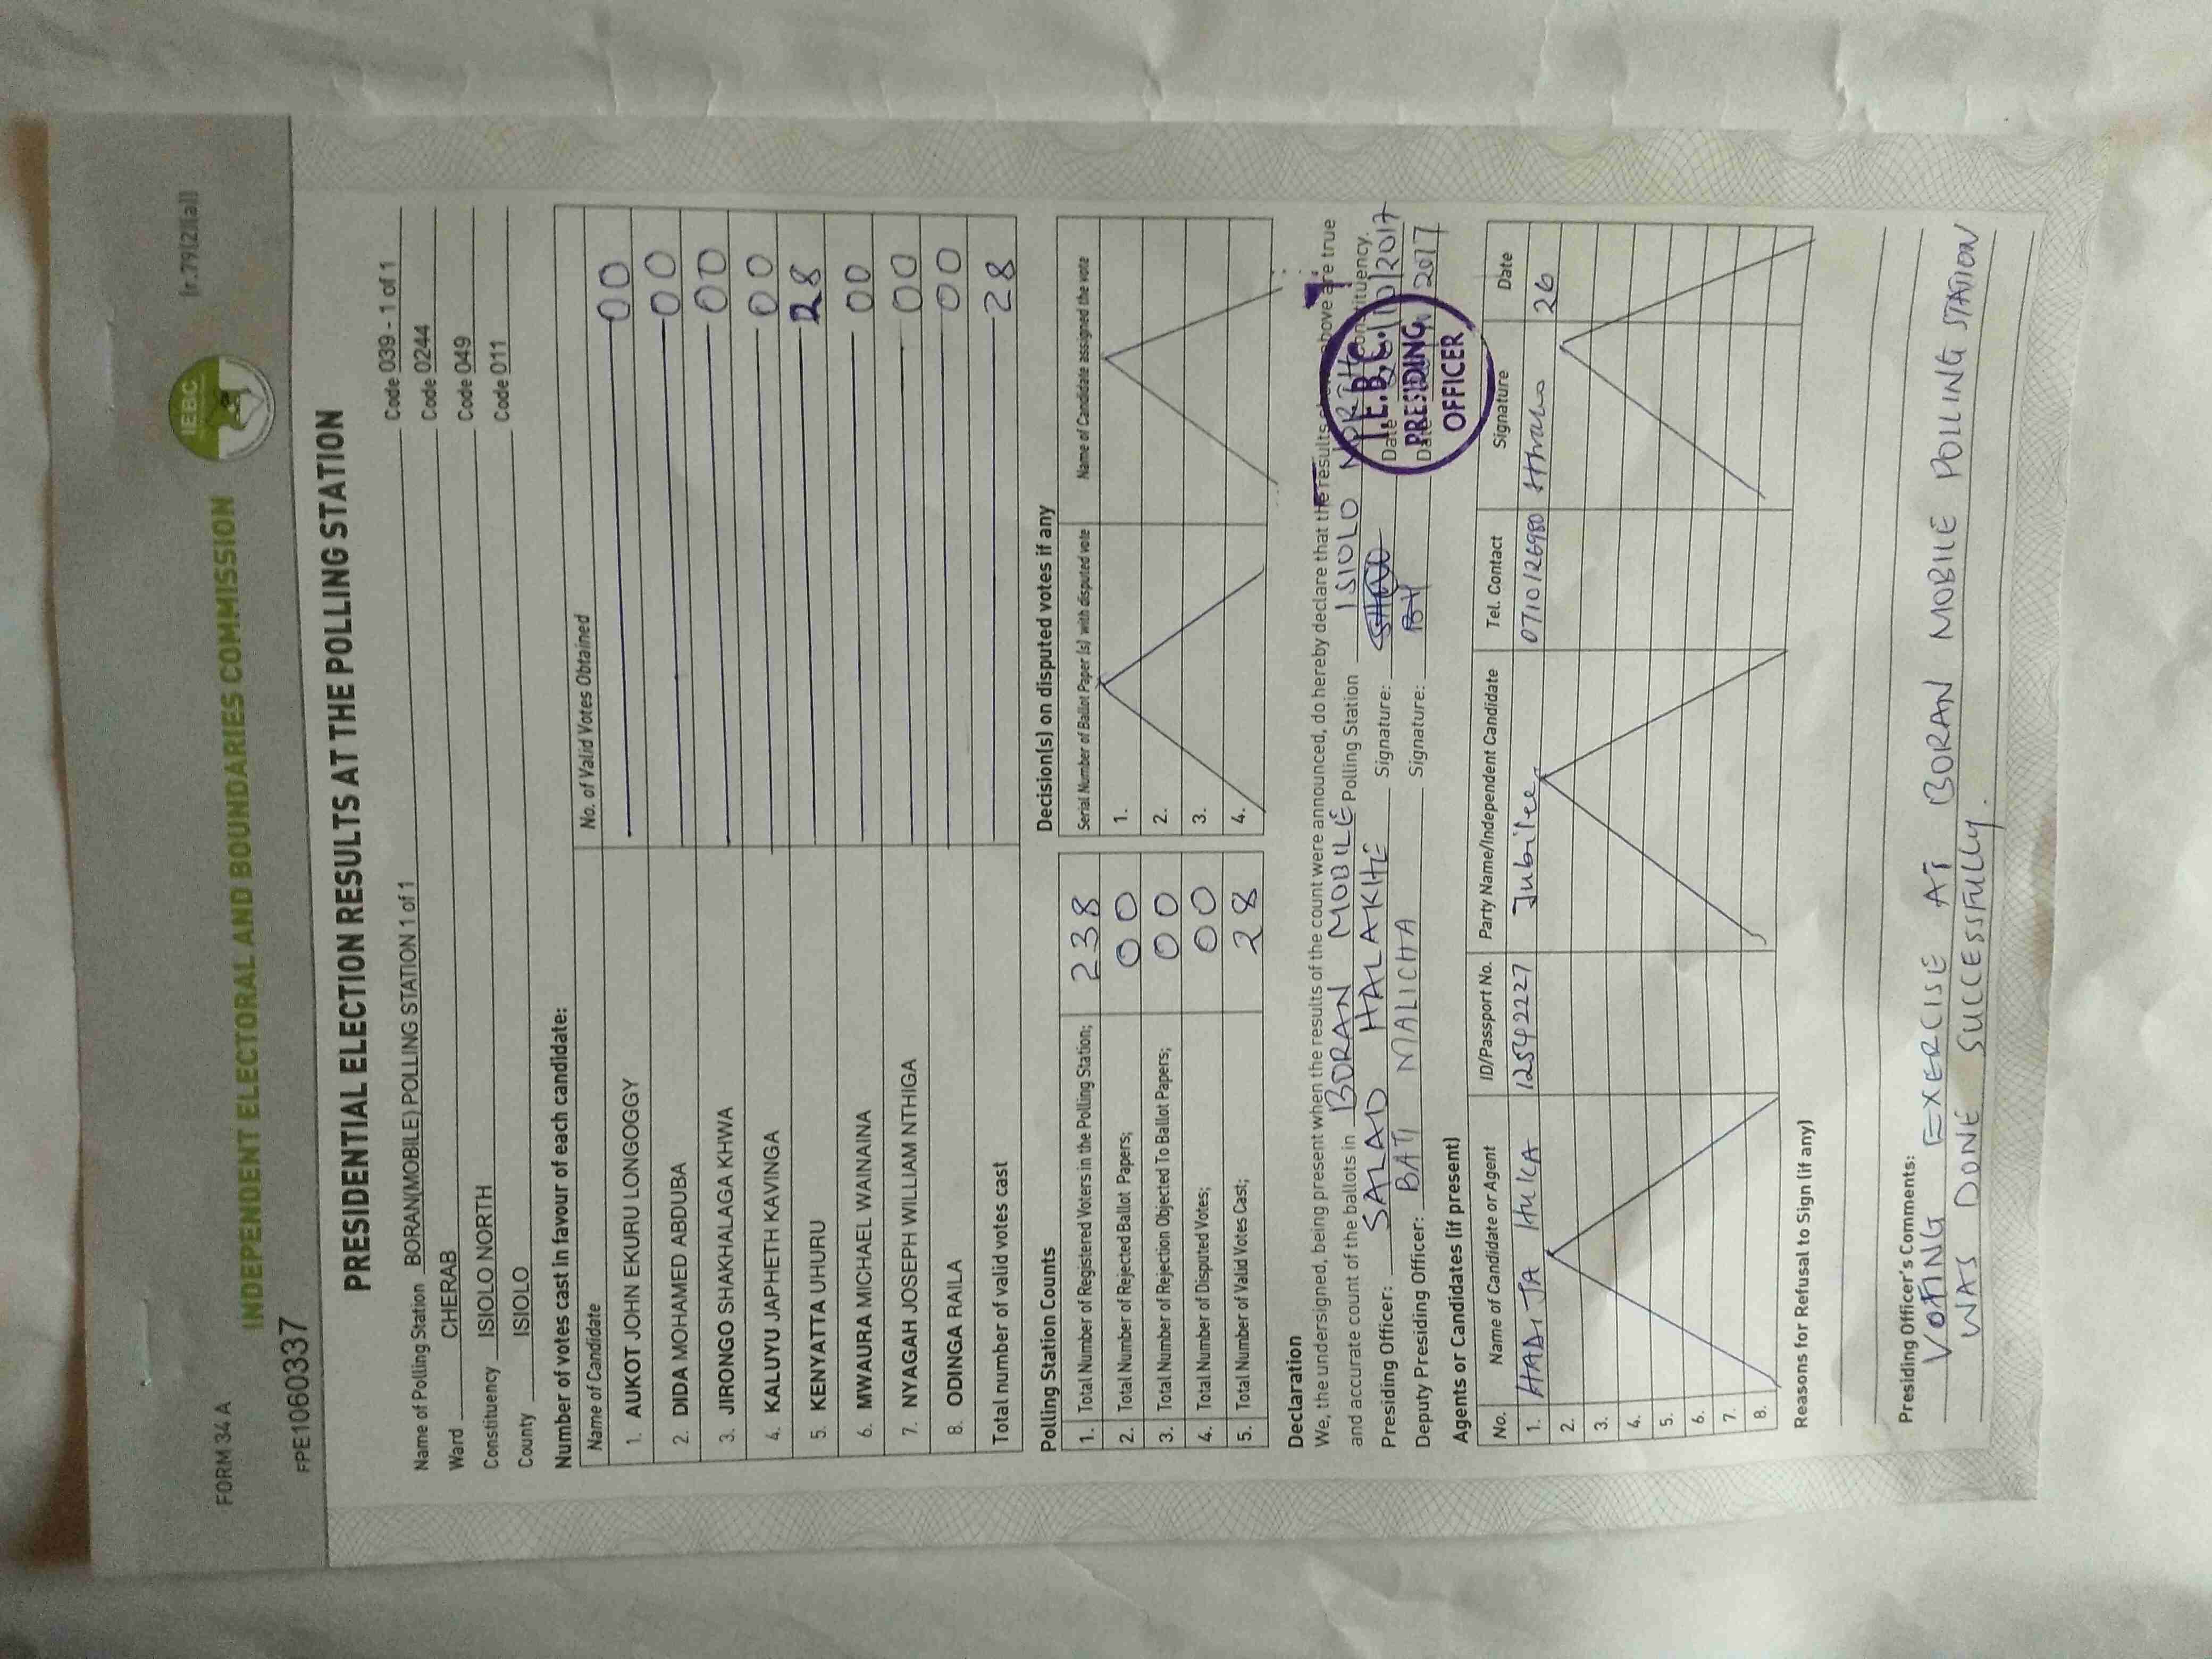 FORM 34 A
(r.79(2)(a))
IEBC
INDEPENDENT ELECTORAL AND BOUNDARIES COMMISSION
FPE1060337
PRESIDENTIAL ELECTION RESULTS AT THE POLLING STATION
Name of Polling Station BORAN(MOBILE) POLLING STATION 1 of 1 Code 039 - 1 of 1
Ward CHERAB Code 0244
Constituency ISIOLO NORTH Code 049
County ISIOLO Code 011
Number of votes cast in favour of each candidate:
Name of Candidate No. of Valid Votes Obtained
1. AUKOT JOHN EKURU LONGOGGY 00
2. DIDA MOHAMED ABDUBA 00
3. JIRONGO SHAKHALAGA KHWA 00
4. KALUYU JAPHETH KAVINGA 00
5. KENYATTA UHURU 28
6. MWAURA MICHAEL WAINAINA 00
7. NYAGAH JOSEPH WILLIAM NTHIGA 00
8. ODINGA RAILA 00
Total number of valid votes cast 28
Polling Station Counts
1. Total Number of Registered Voters in the Polling Station; 238
2. Total Number of Rejected Ballot Papers; 00
3. Total Number of Rejection Objected To Ballot Papers; 00
4. Total Number of Disputed Votes; 00
5. Total Number of Valid Votes Cast; 28
Decision(s) on disputed votes if any
Serial Number of Ballot Paper (s) with disputed vote Name of Candidate assigned the vote
1.
2.
3.
4.
Declaration
We, the undersigned, being present when the results of the count were announced, do hereby declare that the results above are true
and accurate count of the ballots in BORAN MOBILE Polling Station ISIOLO NORTH Constituency.
Presiding Officer: SALAD HALAKHE Signature: Date 26/10/2017
Deputy Presiding Officer: BATI MALICHA Signature: Date 2017
I.E.B.C.
PRESIDING
OFFICER
Agents or Candidates (if present)
No. Name of Candidate or Agent ID/Passport No. Party Name/Independent Candidate Tel. Contact Signature Date
1. HADIJA HUKA 12542227 Jubilee 0710126980 26
2.
3.
4.
5.
6.
7.
8.
Reasons for Refusal to Sign (if any)
Presiding Officer's Comments:
VOTING EXERCISE AT BORAN MOBILE POLLING STATION
WAS DONE SUCCESSFULLY.